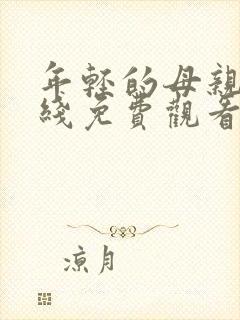 年轻的母親
綫免費觀看
凉月